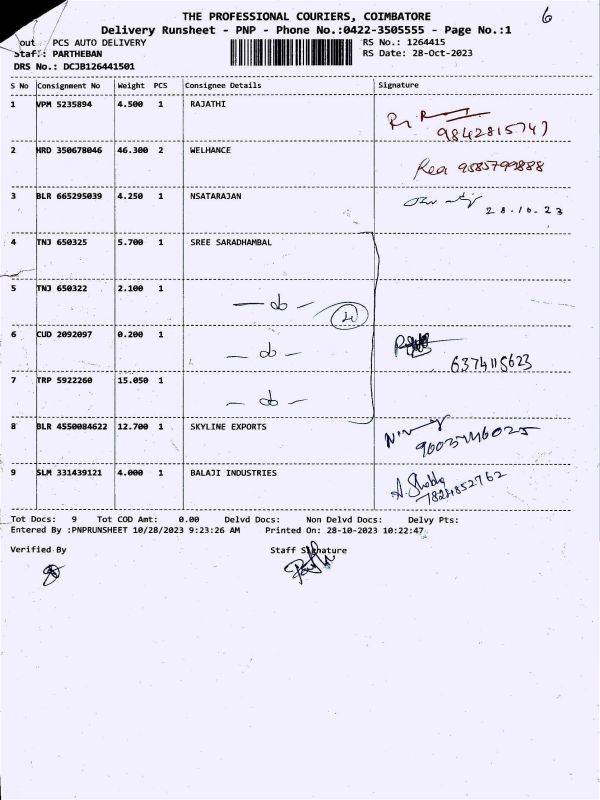 THE PROFESSIONAL COURIERS, COIMBATORE
6
Delivery Runsheet - PNP - Phone No.:0422-3505555 - Page No.:1
out PCS AUTO DELIVERY RS No.: 1264415
Staff: PARTHEBAN RS Date: 28-Oct-2023
DRS No.: DCJB126441501
S No Consignment No Weight PCS Consignee Details Signature
1 VPM 5235894 4.500 1 RAJATHI
9842815747
2 HRD 350678046 46.300 2 WELHANCE
9585799888
3 BLR 665295039 4.250 1 NSATARAJAN
28.10.23
4 TNJ 650325 5.700 1 SREE SARADHAMBAL
5 TNJ 650322 2.100 1
— do —
6 CUD 2092097 0.200 1
— do —
6374115623
7 TRP 5922260 15.050 1
— do —
8 BLR 4550084622 12.700 1 SKYLINE EXPORTS
9 SLM 331439121 4.000 1 BALAJI INDUSTRIES
7824852762
Tot Docs: 9 Tot COD Amt: 0.00 Delvd Docs: Non Delvd Docs: Delvy Pts:
Entered By :PNPRUNSHEET 10/28/2023 9:23:26 AM Printed On: 28-10-2023 10:22:47
Verified By Staff Signature